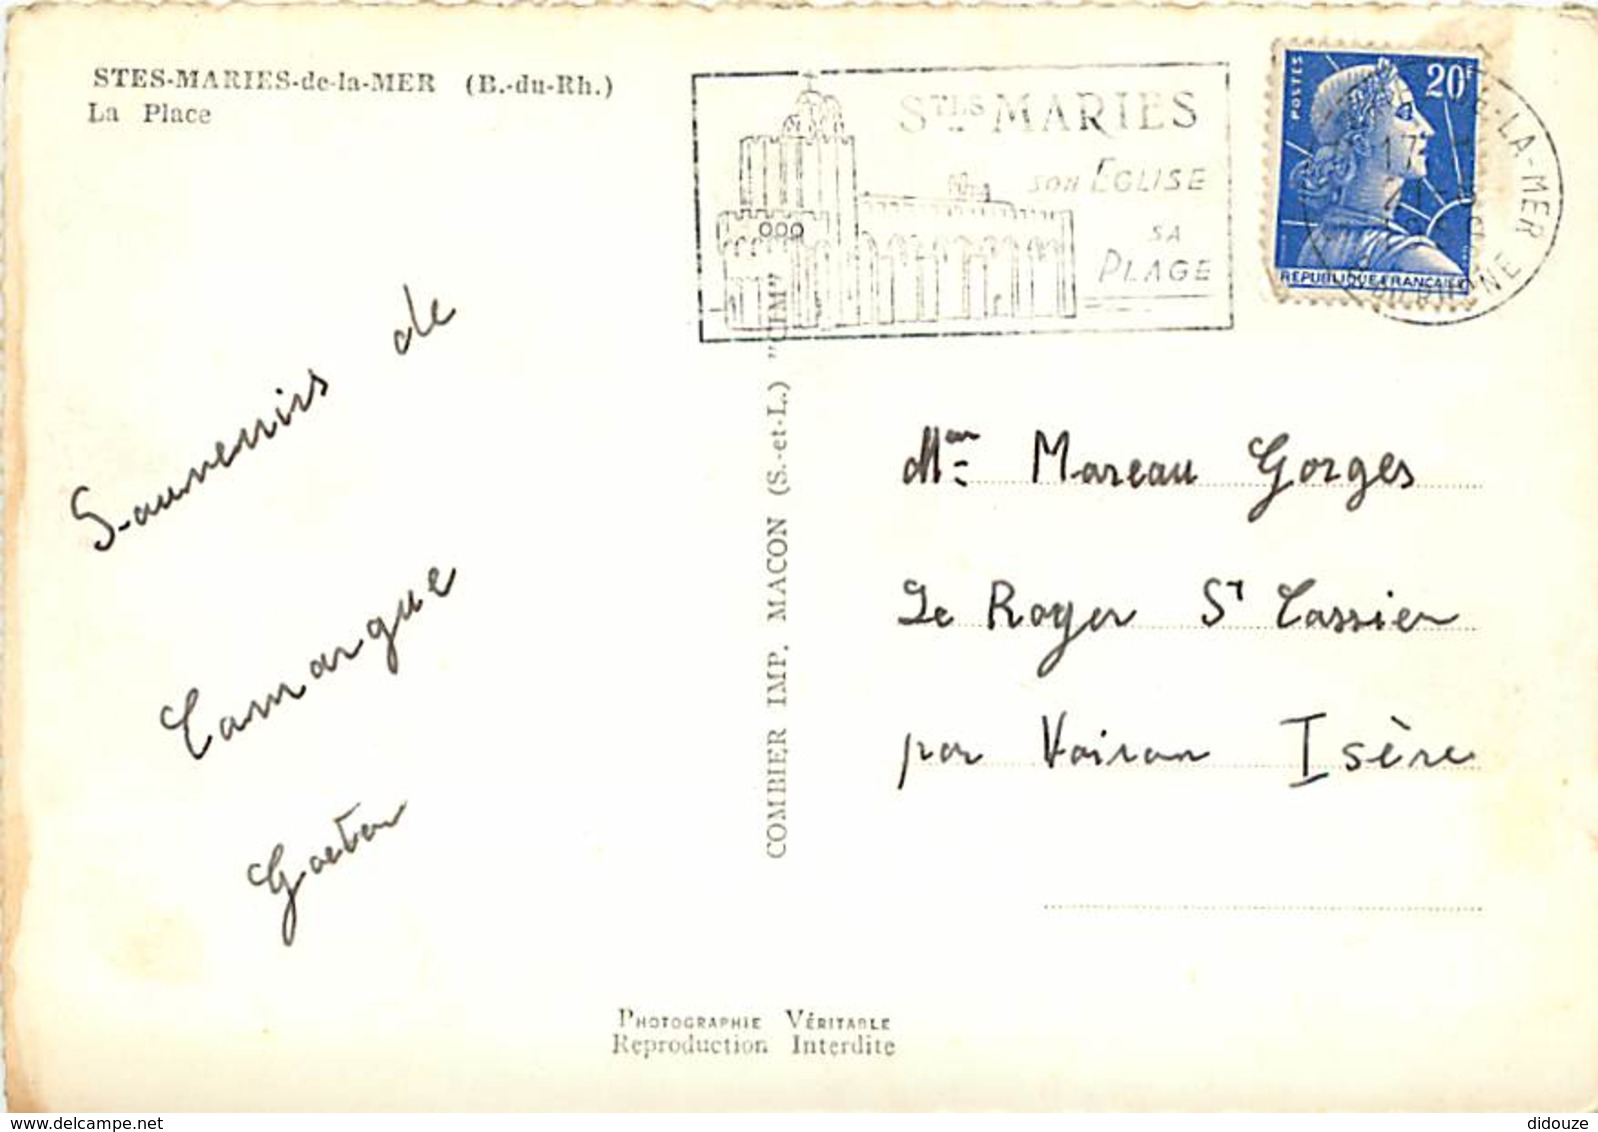 STES-MARIES-de-la-MER (B.-du-Rh.)
La Place
STES MARIES
SON EGLISE
SA
PLAGE
POSTES
20F
REPUBLIQUE FRANCAISE
LA-MER
17
Souvenirs de
Camargue
Gaetan
COMBIER IMP. MACON (S.-et-L.) "CIM"
Mr Mareau Gorges
Le Royer St Cassien
par Voiron Isère
PHOTOGRAPHIE VÉRITABLE
Reproduction Interdite
www.delcampe.net
didouze